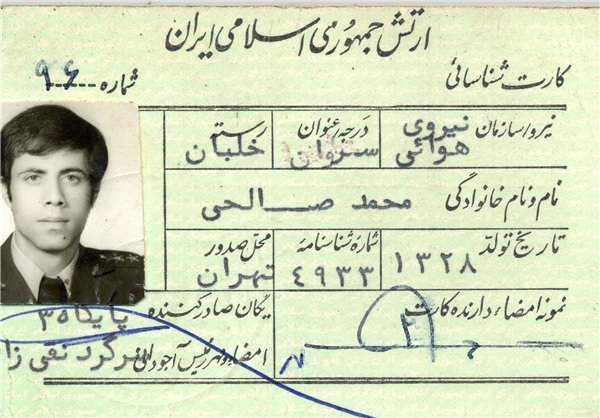 ارتش جمهوری اسلامی ایران
کارت شناسائی
شماره ۹۶
نیرو/سازمان نیروی هوائی
درجه/عنوان سروان
رسته خلبان
نام و نام خانوادگی محمد صالحی
تاریخ تولد ۱۳۲۸
شمارهٔ شناسنامه ۴۹۳۳
محل صدور تهران
نمونه امضاء دارنده کارت
یگان صادر کننده پایگاه ۳
امضاء و مهر رئیس آجودانی سرگرد نقی زا